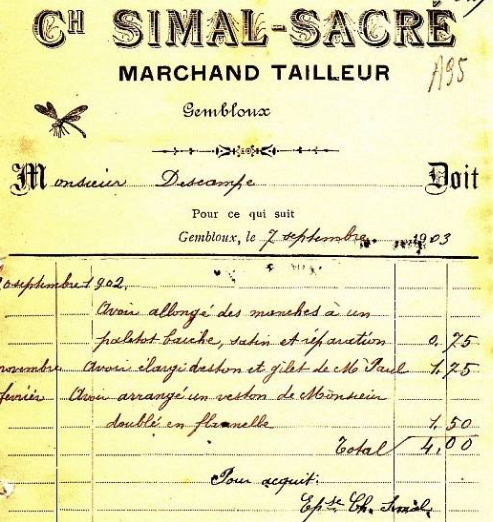 CH SIMAL-SACRÉ
A95
MARCHAND TAILLEUR
Gembloux
Monsieur Descampe Doit
Pour ce qui suit
Gembloux, le 7 septembre 1903
septembre 1902.
Avoir allongé des manches à un
paletot satin et réparation 0.75
novembre Avoir élargi veston et gilet de Mr Paul 1.75
fevrier Avoir arrangé un veston de Monsieur
doublé en flannelle 1.50
Total 4.00
Pour acquit:
Epse Ch. Simal.